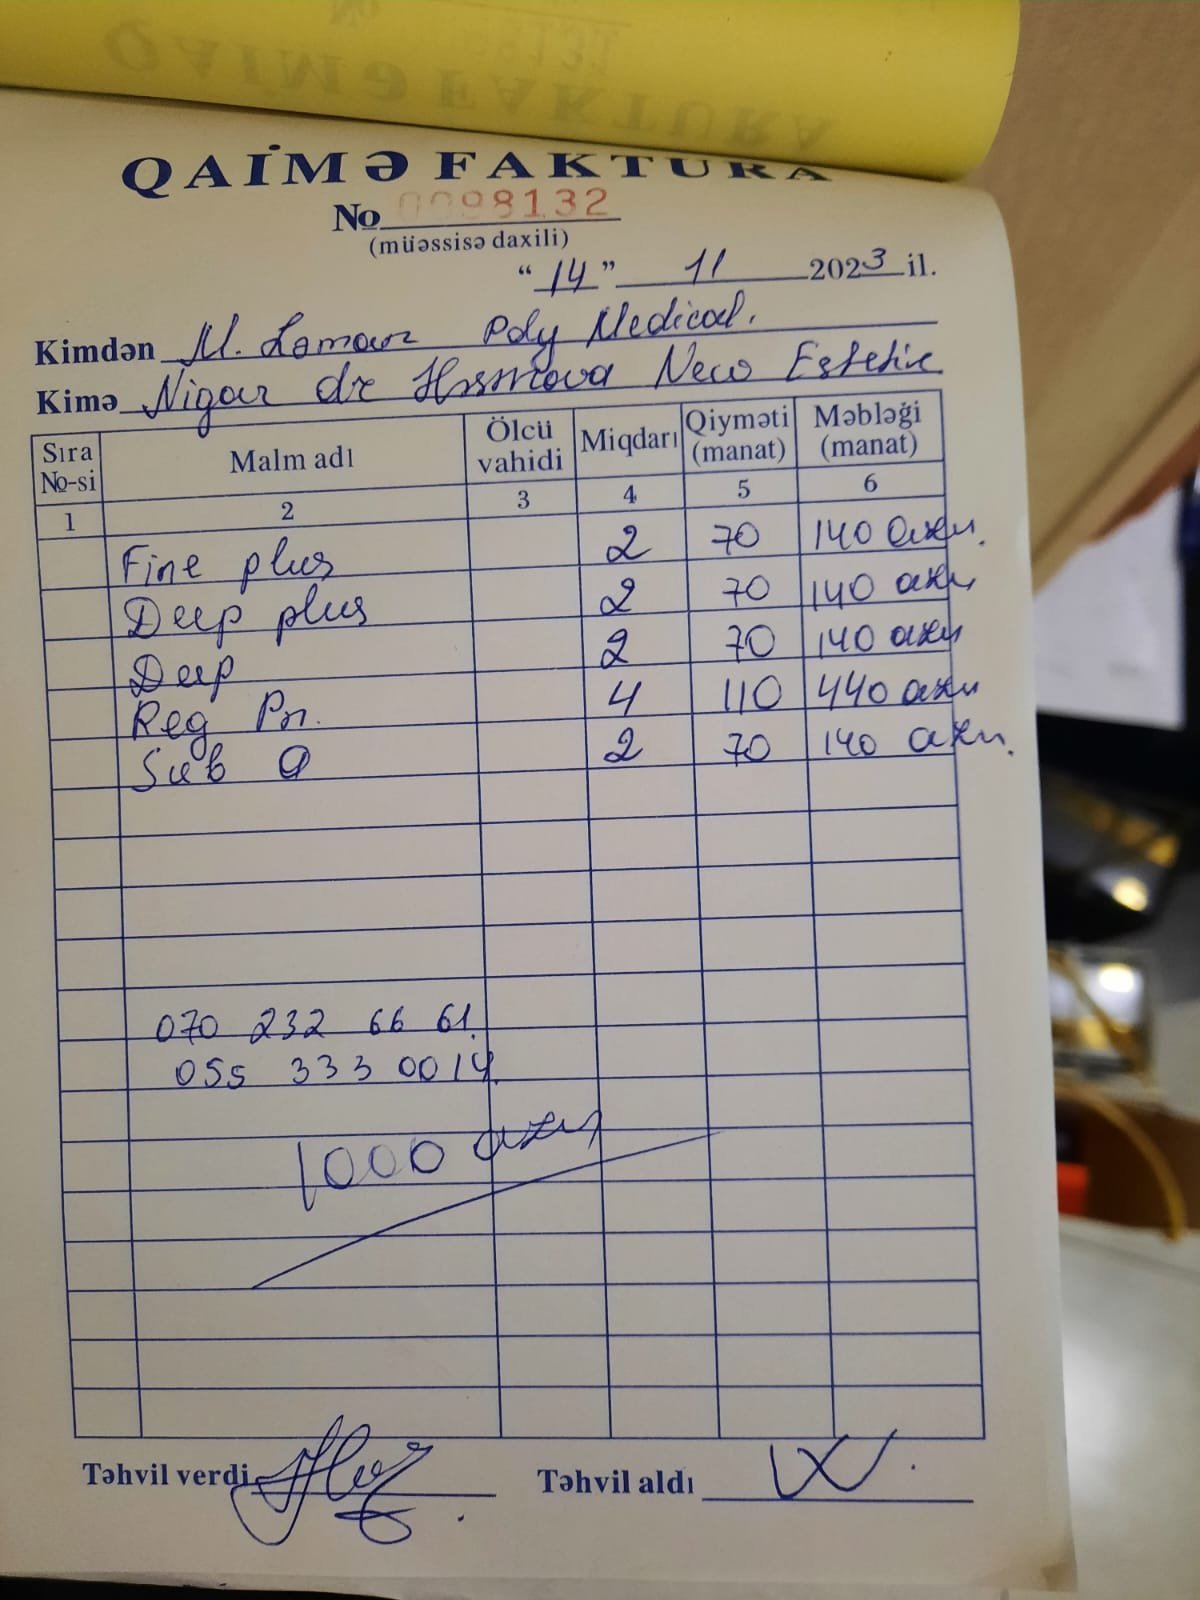 QAİMƏ FAKTURA
№ 0098132
(müəssisə daxili)
“14” 11 2023 il.
Kimdən M. Lamour Poly Medical.
Kimə Nigar dr Neco Estetic
Sıra №-si Malm adı Ölcü vahidi Miqdarı Qiyməti (manat) Məbləği (manat)
1 2 3 4 5 6
Fine plus 2 70 140 azn.
Deep plus 2 70 140 azn
Deep 2 70 140 azn
Reg Pn. 4 110 440 azn
Sub Q 2 70 140 azn.
070 232 66 61.
055 333 00 14.
1000 azn
Təhvil verdi
Təhvil aldı